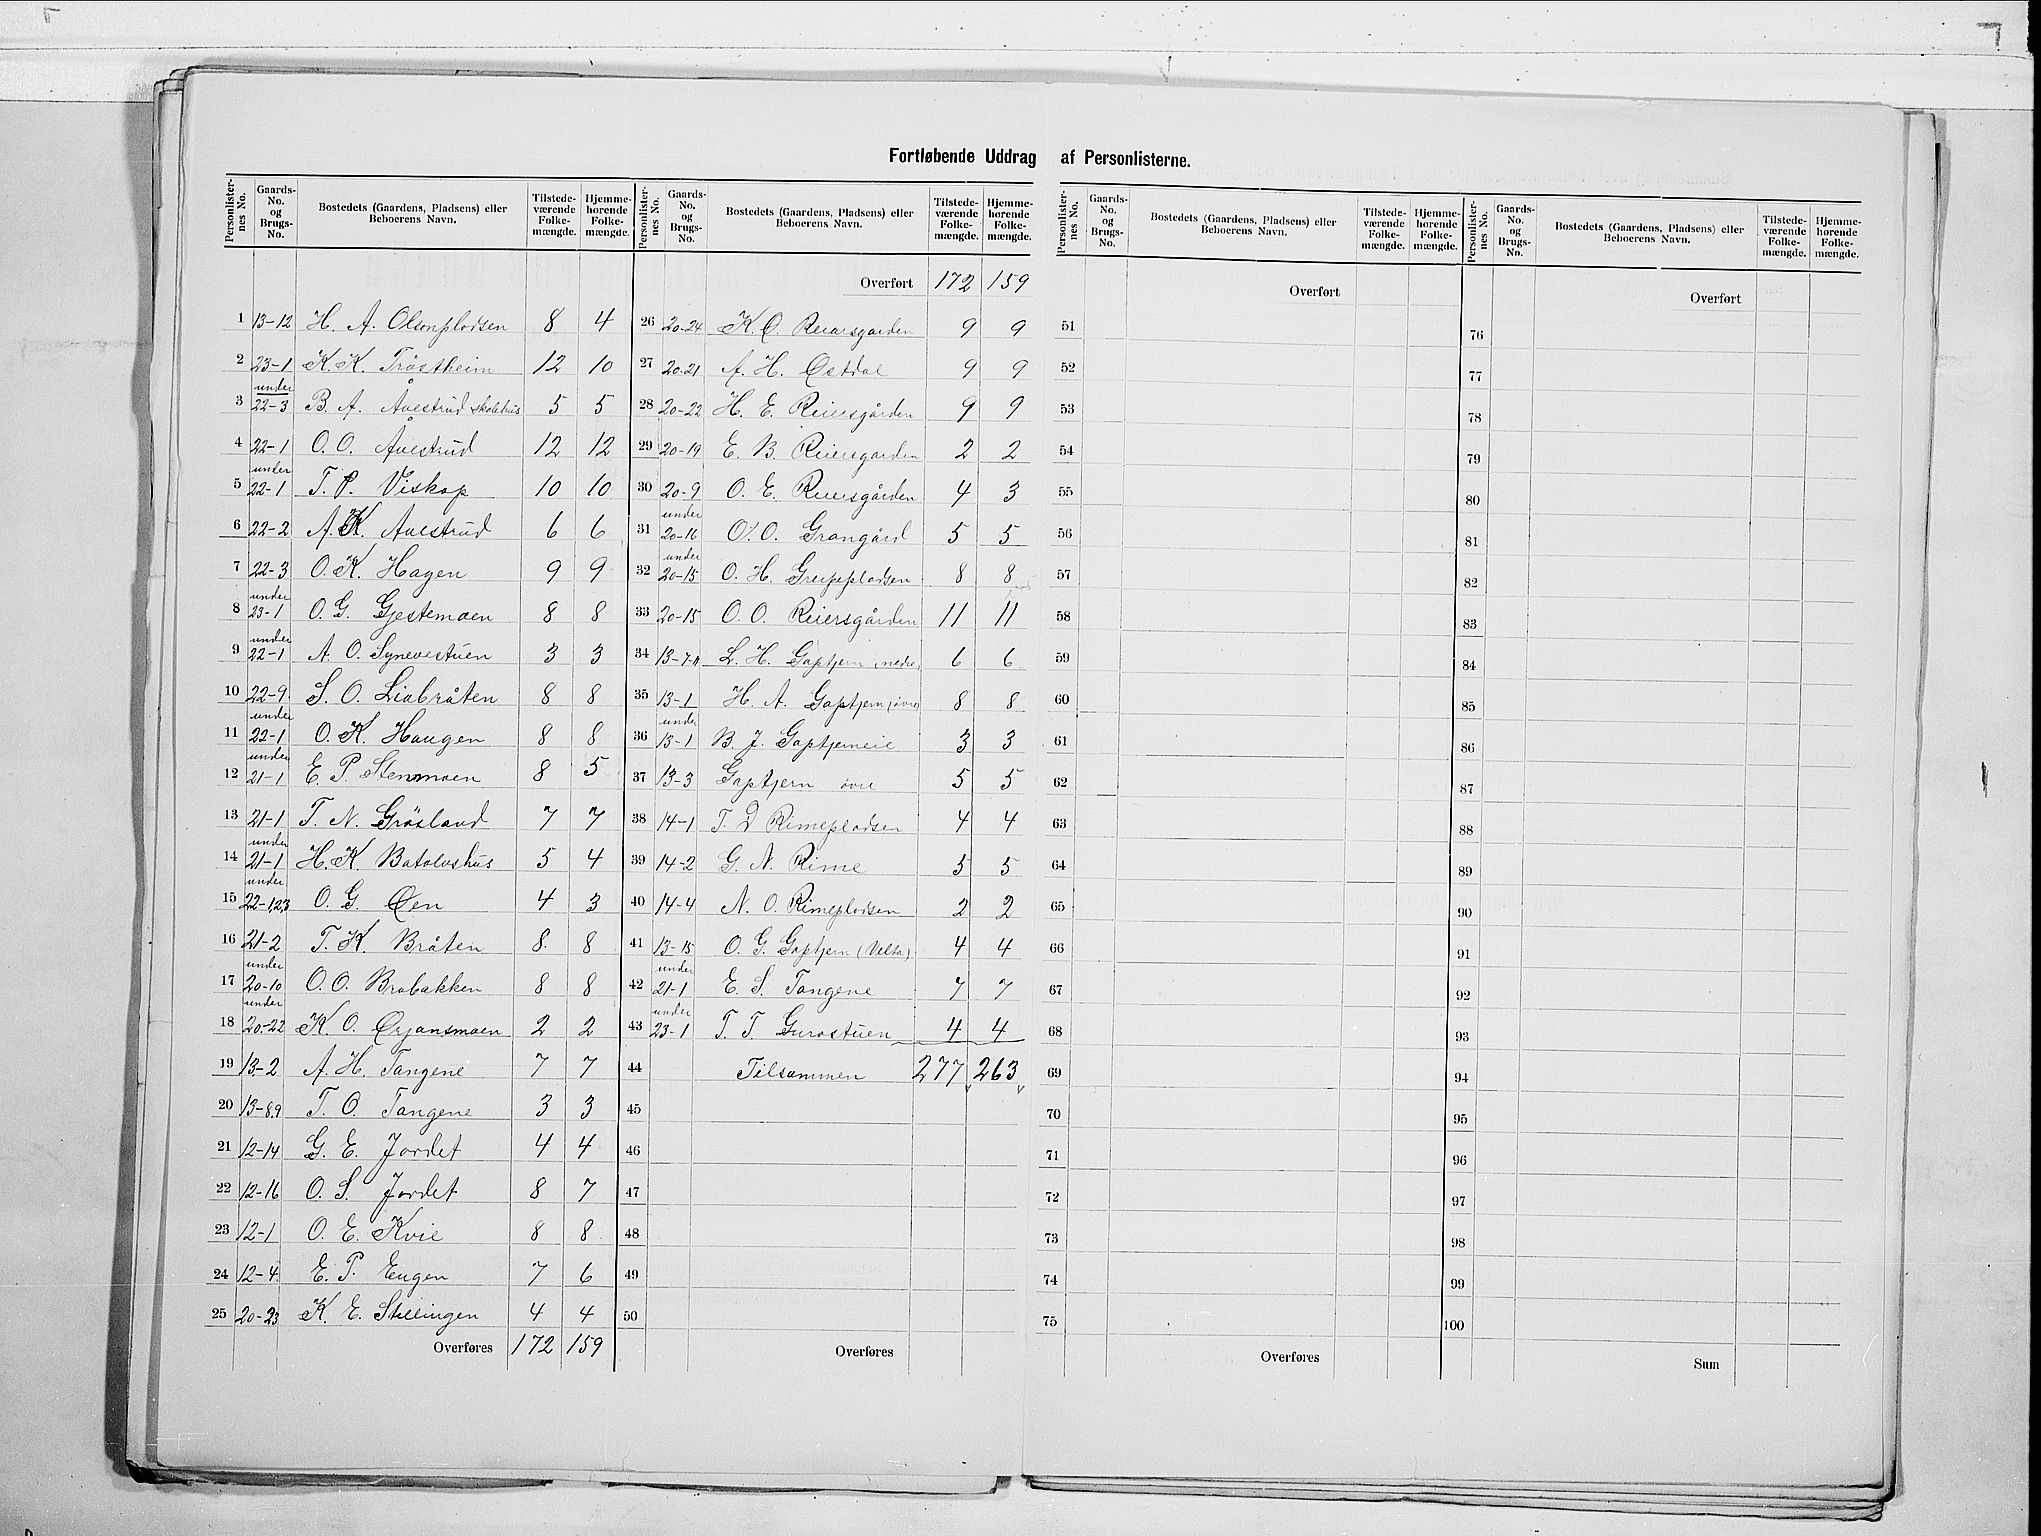 Fortløbende Uddrag af Personlisterne.
Personlisternes No. | Gaards-No. og Brugs-No. | Bostedets (Gaardens, Pladsens) eller Beboerens Navn. | Tilstedeværende Folkemængde. | Hjemmehørende Folkemængde.
1 13-12 H. A. Olsenpladsen 8 4
2 23-1 K. K. Trøstheim 12 10
3 under 22-3 B. A. Åvestrud skolehus 5 5
4 22-1 O. O. Åvestrud 12 12
5 under 22-1 T. P. Viskop 10 10
6 22-2 A. K. Avestrud 6 6
7 22-3 O. K. Hagen 9 9
8 under 23-1 O. G. Gjestemoen 8 8
9 under 22-1 A. O. Synevestuen 3 3
10 22-9 S. O. Liabråten 8 8
11 under 22-1 O. K. Haugen 8 8
12 under 21-1 E. P. Stenmoen 8 5
13 21-1 T. N. Grøsland 7 7
14 under 21-1 H. K. Batolvshus 5 4
15 under 22-1,2,3 O. G. Øen 4 3
16 21-2 T. K. Bråten 8 8
17 under 20-10 O. O. Brabakken 8 8
18 under 20-22 K. O. Ørjansmoen 2 2
19 13-2 A. H. Tangene 7 7
20 13-8,9 T. O. Tangene 3 3
21 12-14 G. E. Jordet 4 4
22 12-16 O. S. Jordet 8 7
23 12-1 O. E. Kvie 8 8
24 12-4 E. P. Eugen 7 6
25 20-23 K. E. Stillingen 4 4
Overføres 172 159
Personlisternes No. | Gaards-No. og Brugs-No. | Bostedets (Gaardens, Pladsens) eller Beboerens Navn. | Tilstedeværende Folkemængde. | Hjemmehørende Folkemængde.
Overført 172 159
26 20-24 K. O. Reiersgarden 9 9
27 20-21 A. H. Østdal 9 9
28 20-22 H. E. Reiersgården 9 9
29 20-19 E. B. Reiersgarden 2 2
30 20-9 O. E. Reiersgården 4 3
31 under 20-16 O. O. Grangård 5 5
32 under 20-15 O. H. Greipepladsen 8 8
33 20-15 O. O. Reiersgården 11 11
34 13-7-11 L. H. Goptjern nedre 6 6
35 13-1 H. A. Goptjern (øvre) 8 8
36 under 13-1 B. J. Goptjerneie 3 3
37 13-3 Goptjern øvre 5 5
38 14-1 T. Rimepladsen 4 4
39 14-2 G. N. Rime 5 5
40 14-4 N. O. Rimepladsen 2 2
41 13-15 O. G. Goptjern (Velta) 4 4
42 under 21-1 E. S. Tangene 7 7
43 under 23-1 T. T. Gurostuen 4 4
44 Tilsammen 277 263
45
46
47
48
49
50
Overføres
Personlisternes No. | Gaards-No. og Brugs-No. | Bostedets (Gaardens, Pladsens) eller Beboerens Navn. | Tilstedeværende Folkemængde. | Hjemmehørende Folkemængde.
Overført
51
52
53
54
55
56
57
58
59
60
61
62
63
64
65
66
67
68
69
70
71
72
73
74
75
Overføres
Personlisternes No. | Gaards-No. og Brugs-No. | Bostedets (Gaardens, Pladsens) eller Beboerens Navn. | Tilstedeværende Folkemængde. | Hjemmehørende Folkemængde.
Overført
76
77
78
79
80
81
82
83
84
85
86
87
88
89
90
91
92
93
94
95
96
97
98
99
100
Sum